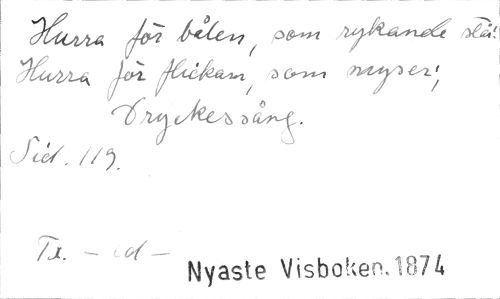 Hurra för bålen, som rykande står!
Hurra för flickan, som myser!,
Dryckessång.
Sid. 119.
Tx. — d —
Nyaste Visboken. 1874